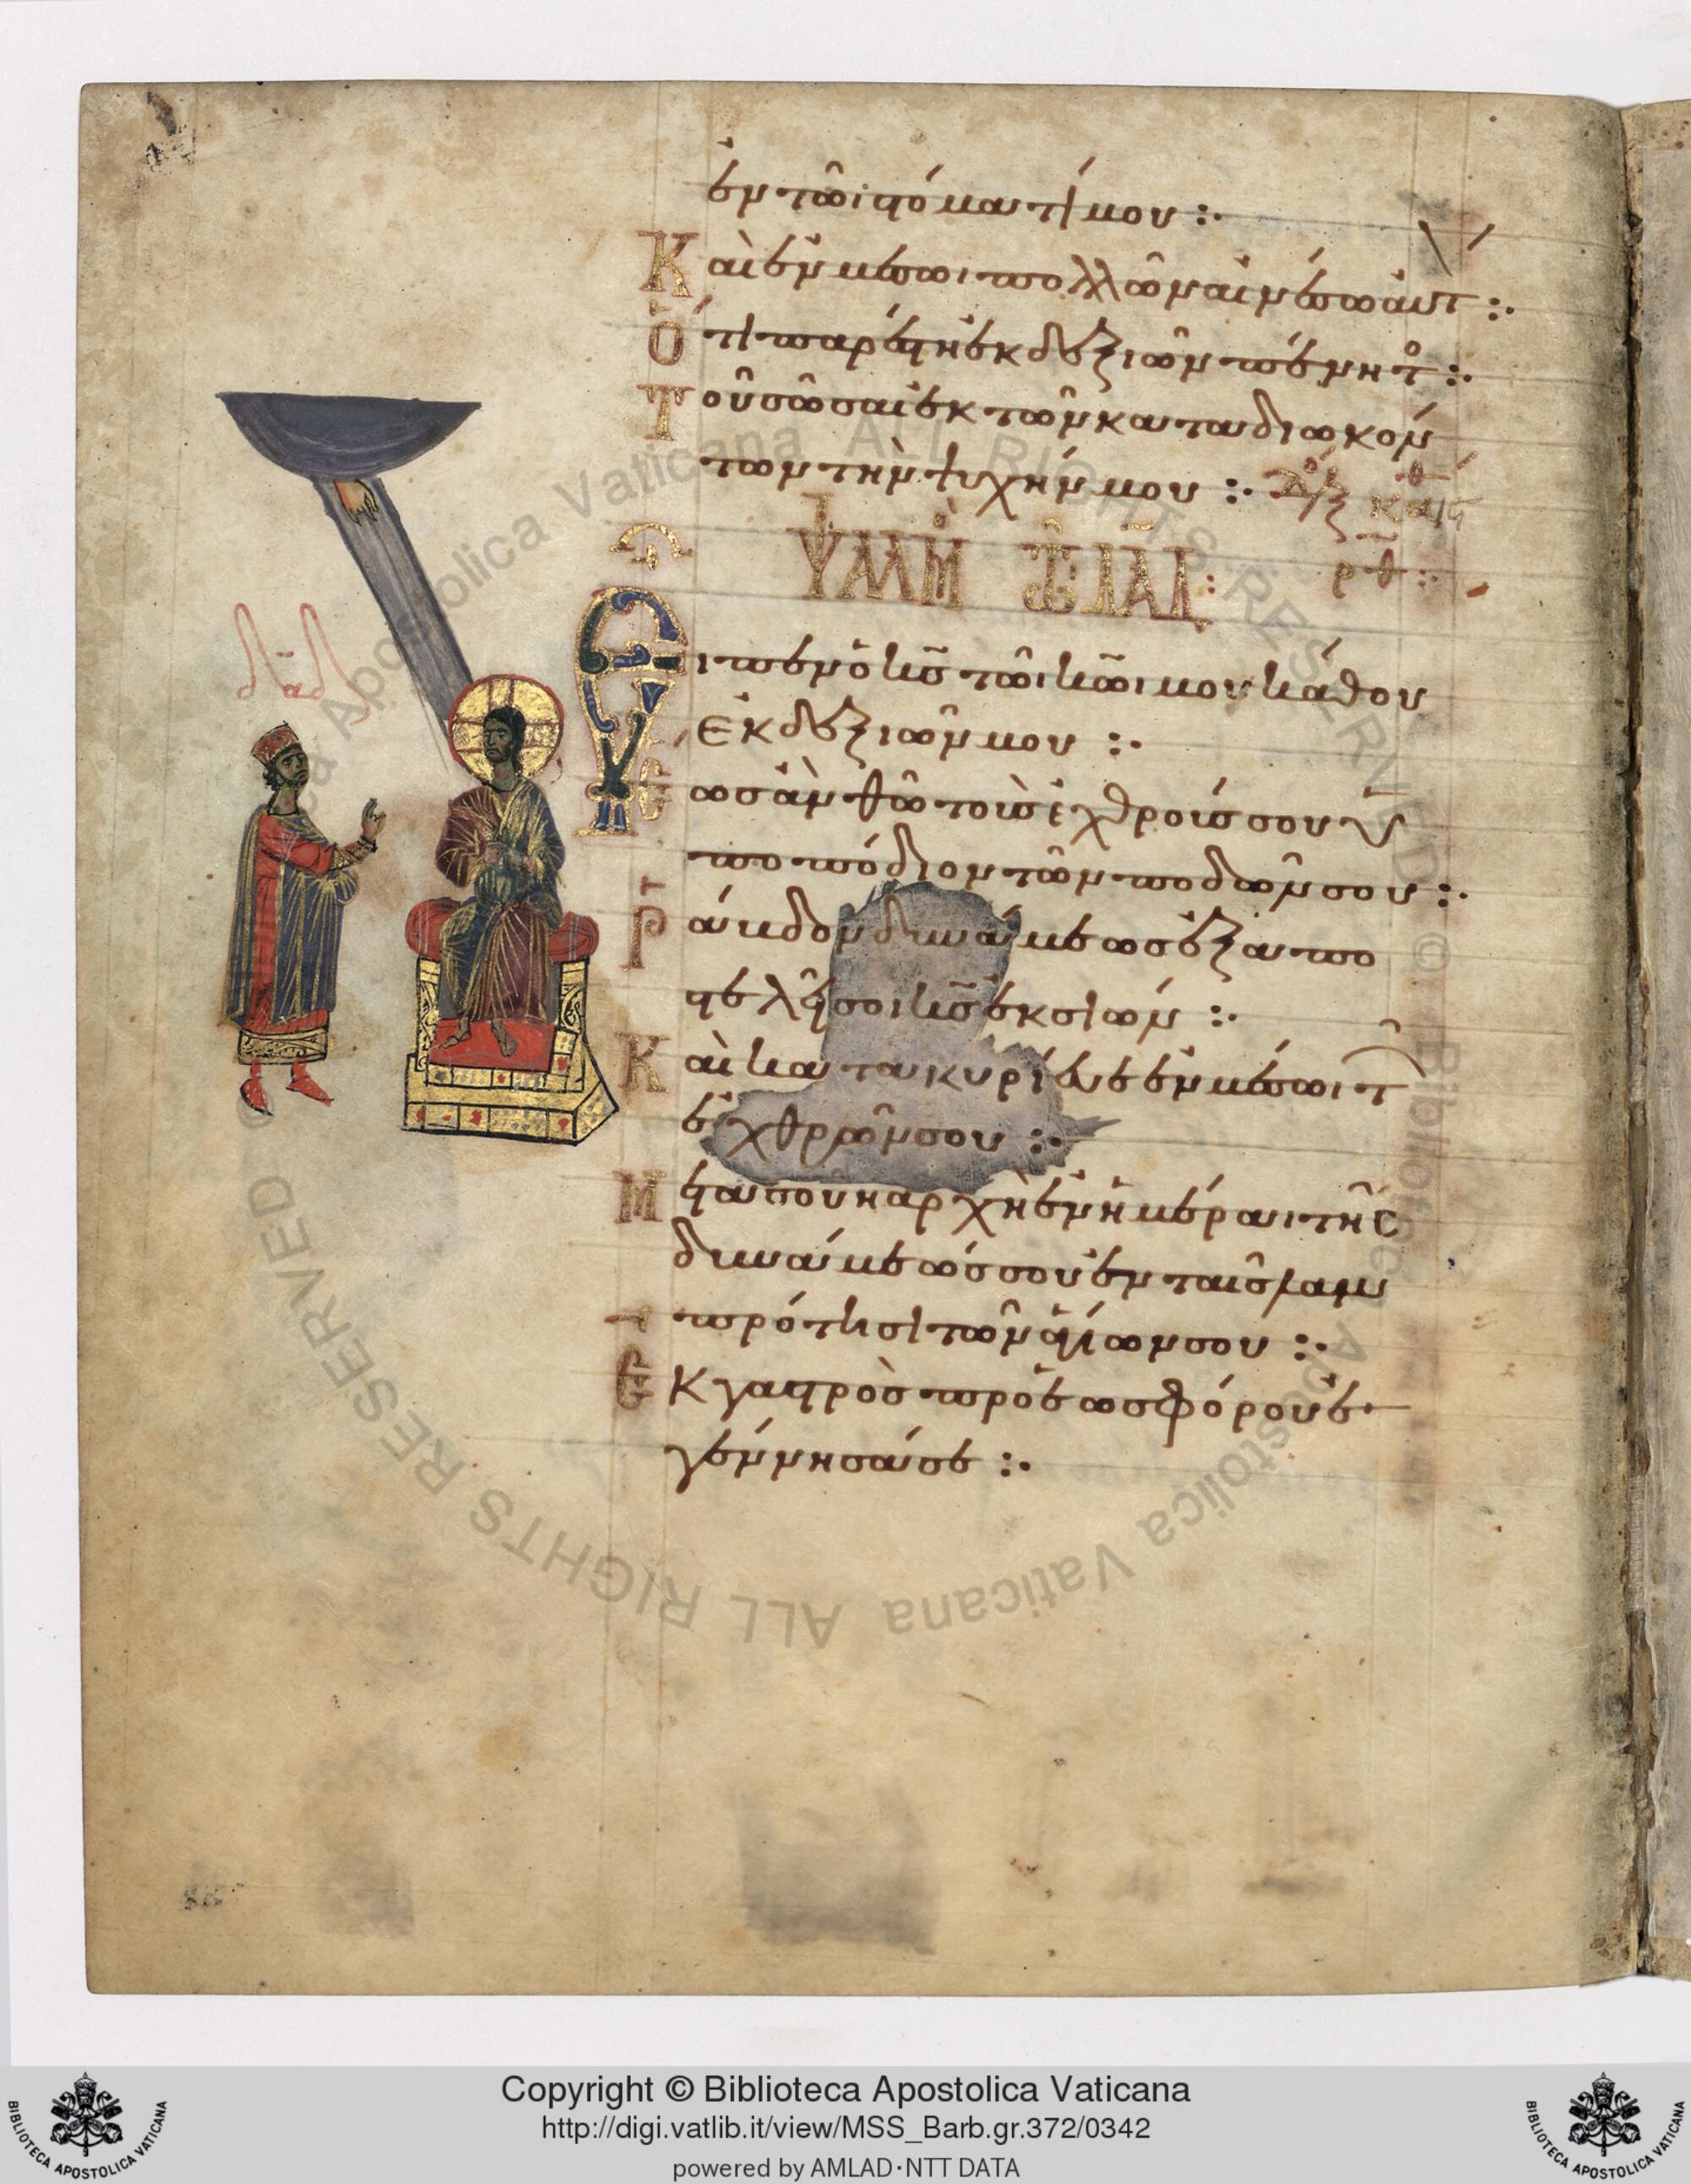 ἐν τῶι στόματί μου :·
Καὶ ἐν μέσωι πολλῶν αἰνέσω αὐτ :·
Ὅτι παρέστη ἐκ δεξιῶν πένητο :·
Τοῦ σῶσαι ἐκ τῶν καταδιωκόν
των τὴν ψυχήν μου :· δόξ καθ
ΨΑΛΜ Τῶ ΔΑΔ : ρθ :·
δαδ
Εἶπεν ὁ κς τῶι κωι μου κάθου
ἐκ δεξιῶν μου :·
Ἕως ἂν θῶ τοὺς ἐχθρούς σου ὑ
ποπόδιον τῶν ποδῶν σου :·
Ῥάβδον δυνάμεως ἐξαπο
στελεῖ σοι κς ἐκ σιών :·
Καὶ κατακυρίευε ἐν μέσωι τ
ἐχθρῶν σου :·
Μετα σοῦ ἡ ἀρχὴ ἐν ἡμέραι τῆς
δυνάμεώς σου ἐν ταῖς λαμ
πρότησι τῶν ἁγίων σου :·
Ἐκ γαστρὸς πρὸ ἑωσφόρου ἐ
γέννησά σε :·
Copyright © Biblioteca Apostolica Vaticana
http://digi.vatlib.it/view/MSS_Barb.gr.372/0342
powered by AMLAD·NTT DATA
BIBLIOTECA APOSTOLICA VATICANA
BIBLIOTECA APOSTOLICA VATICANA
© Biblioteca Apostolica Vaticana ALL RIGHTS RESERVED
© Biblioteca Apostolica Vaticana ALL RIGHTS RESERVED